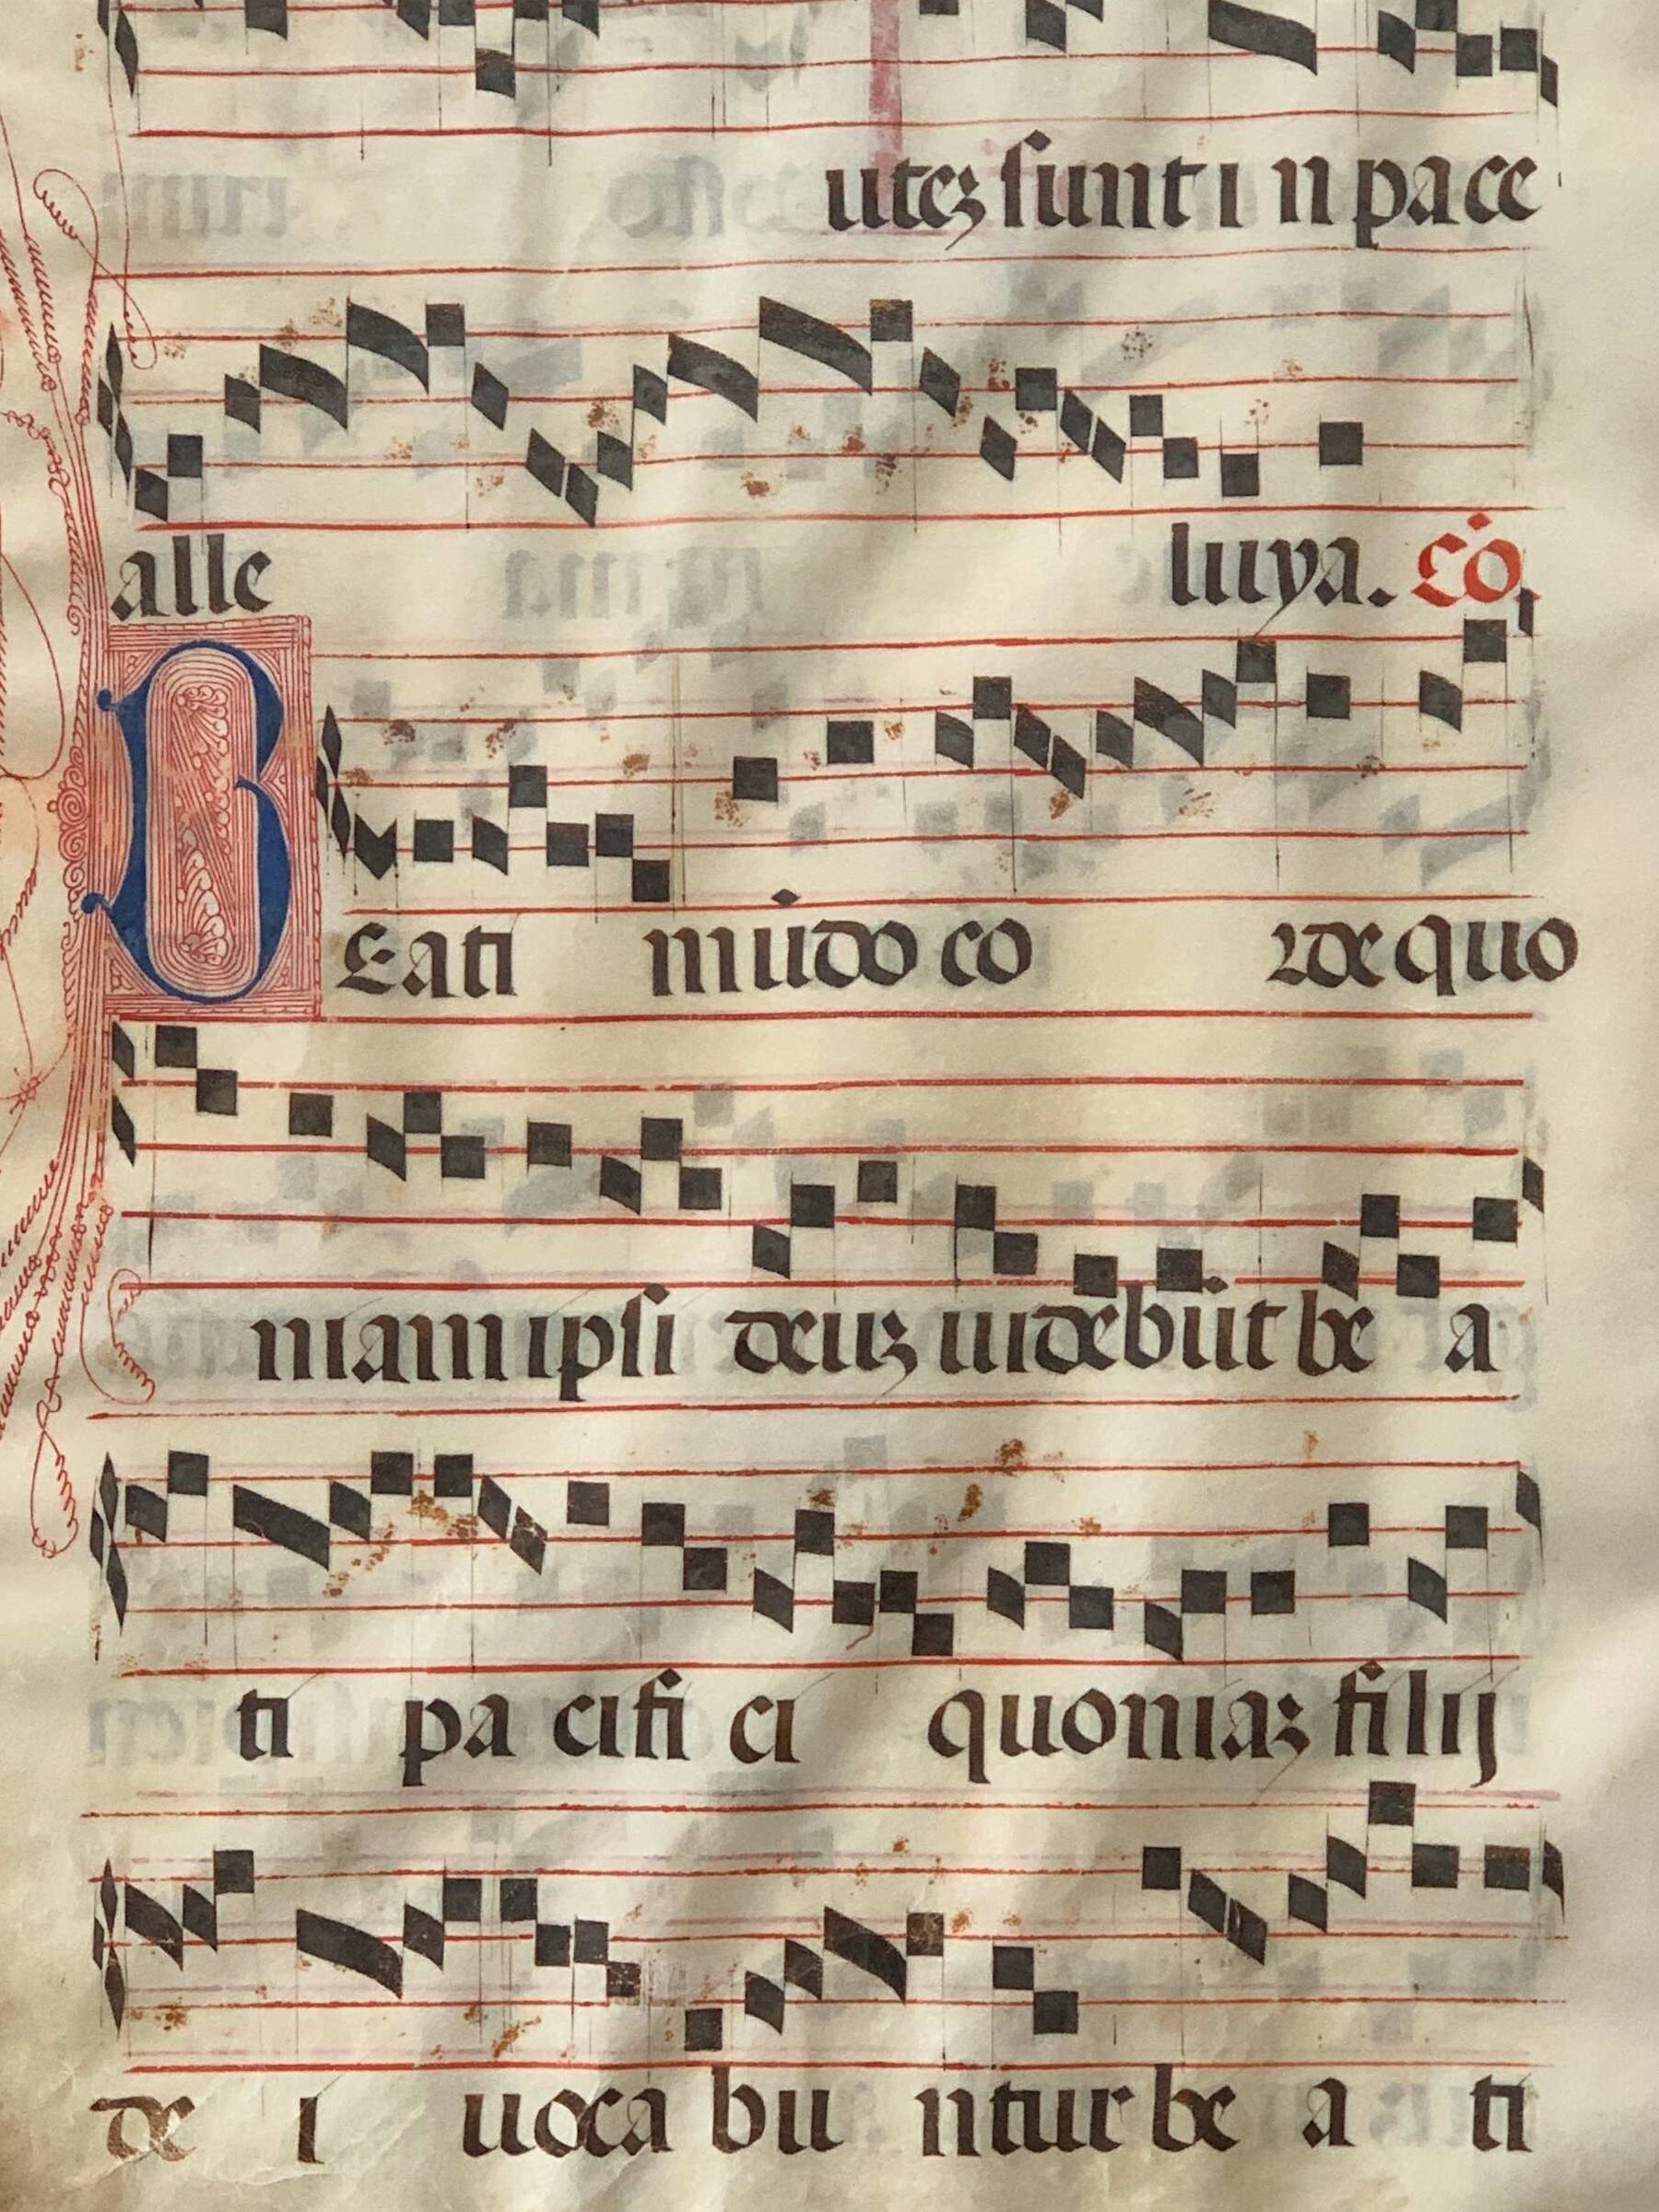 uteꝫ sunt i n pa ce
alle luya. Cō.
BEati mūdo co rde quo
niam ipsi deuꝫ uidebūt be a
ti pa cifi ci quoniaꝫ filij
de i uoca bu ntur be a ti